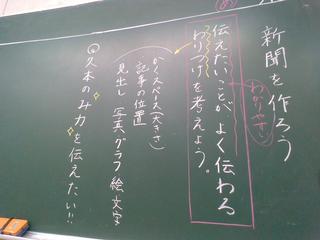 新聞を作ろう
わかりやすい
め
伝えたいことが、よく伝わる
わりつけを考えよう。
かくスペース(大きさ)
記事の位置
見出し 写真、グラフ 絵 文字
久本のみ力を伝えたい!!